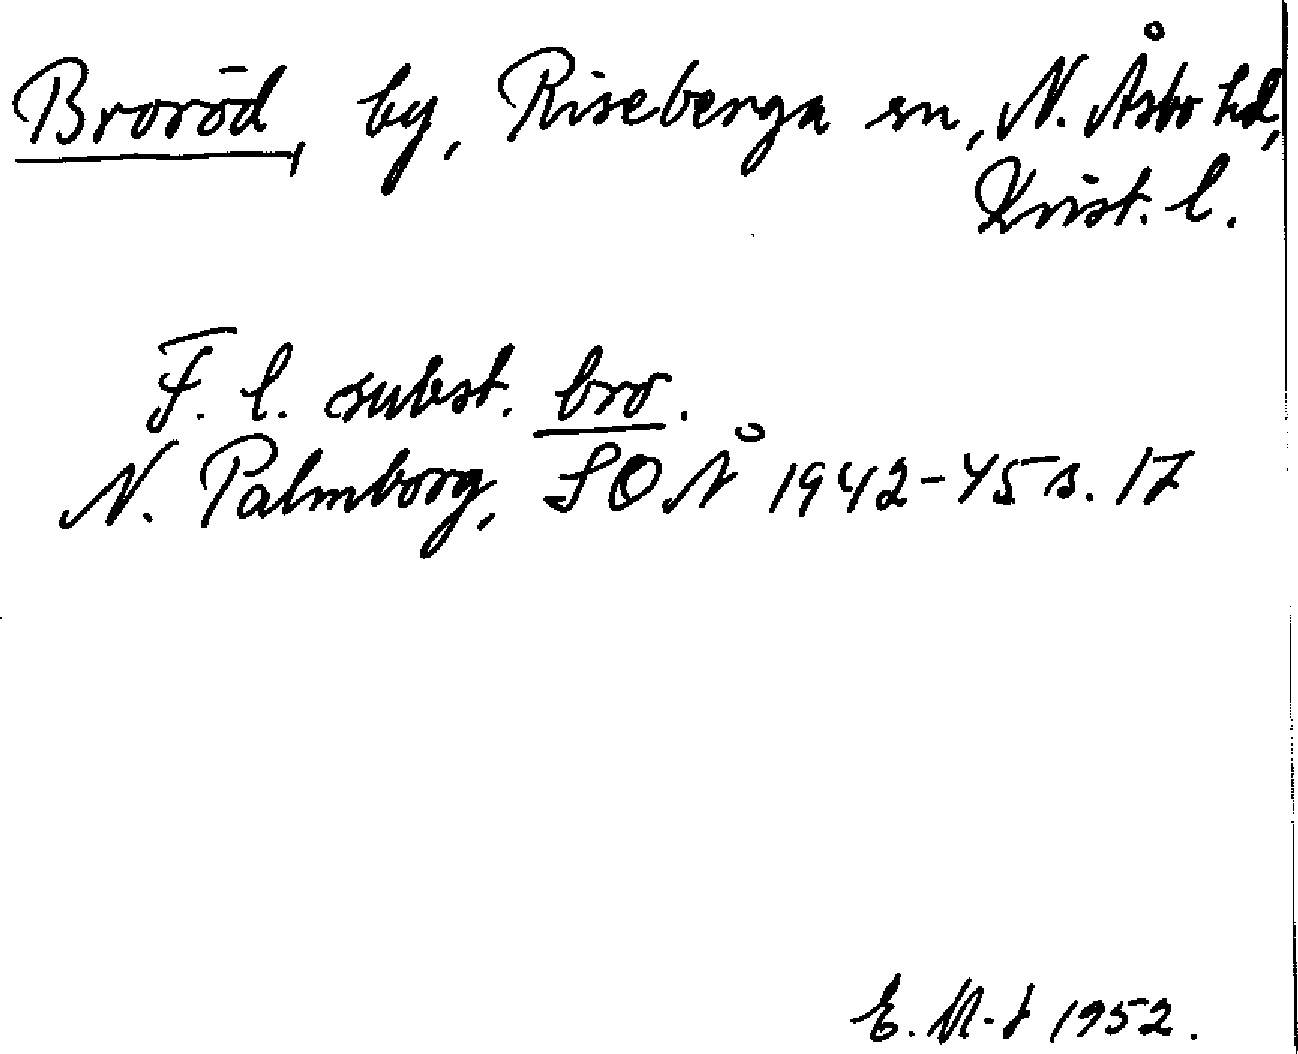 Broröd, by, Riseberga sn, N. Åsbo hd,
Krist. l.
F. l. subst. bro.
N. Palmborg, SOÅ 1942-45 s. 17
E. M-t 1952.